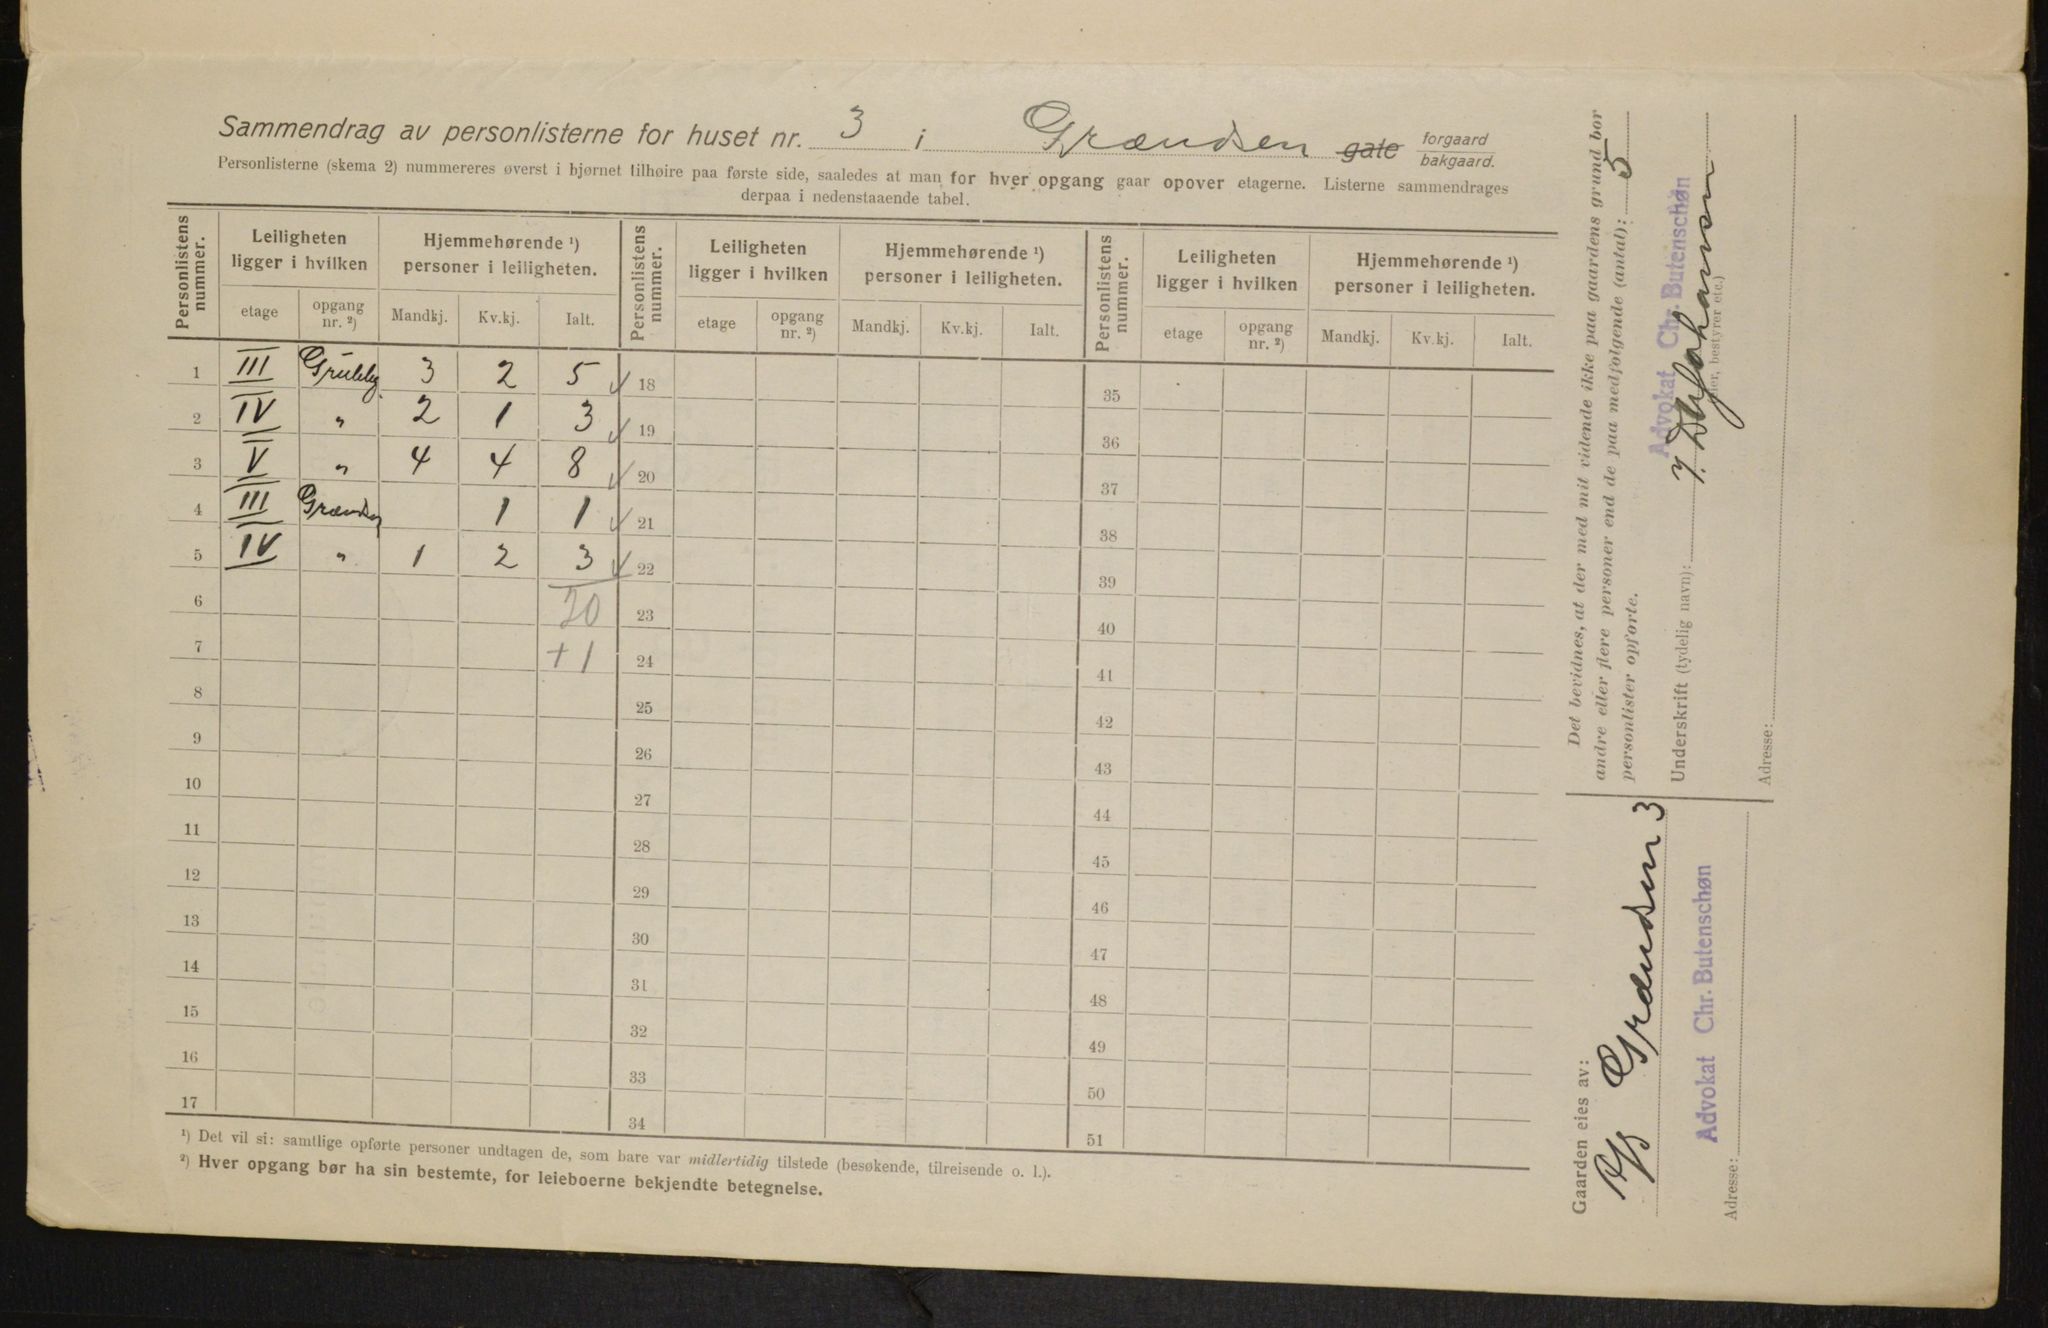 Sammendrag av personlisterne for huset nr. 3 i Grændsen gate forgaard bakgaard.
Personlisterne (skema 2) nummereres øverst i bjørnet tilhøire paa første side, saaledes at man for hver opgang gaar opover etagerne. Listerne sammendrages
derpaa i nedenstaaende tabel.
Personlistens nummer. Leiligheten ligger i hvilken Hjemmehørende ¹) personer i leiligheten. Personlistens nummer. Leiligheten ligger i hvilken Hjemmehørende ¹) personer i leiligheten. Personlistens nummer. Leiligheten ligger i hvilken Hjemmehørende ¹) personer i leiligheten.
etage opgang nr. ²) Mandkj. Kv.kj. Ialt. etage opgang nr. ²) Mandkj. Kv.kj. Ialt. etage opgang nr. ²) Mandkj. Kv.kj. Ialt.
1 III 3 2 5 18 35
2 IV " 2 1 3 19 36
3 V " 4 4 8 20 37
4 III 1 1 21 38
5 IV " 1 2 3 22 39
6 20 23 40
7 +1 24 41
8 25 42
9 26 43
10 27 44
11 28 45
12 29 46
13 30 47
14 31 48
15 32 49
16 33 50
17 34 51
¹) Det vil si: samtlige opførte personer undtagen de, som bare var midlertidig tilstede (besøkende, tilreisende o. l.).
²) Hver opgang bør ha sin bestemte, for leieboerne bekjendte betegnelse.
Det bevidnes, at der med mit vidende ikke paa gaardens grund bor
andre eller flere personer end de paa medfølgende (antal): 5
personlister opførte.
Advokat Chr. Butenschøn
Underskrift (tydelig navn):
bestyrer etc.)
Adresse:
Gaarden eies av:
Grændsen 3
Advokat Chr. Butenschøn
Adresse: